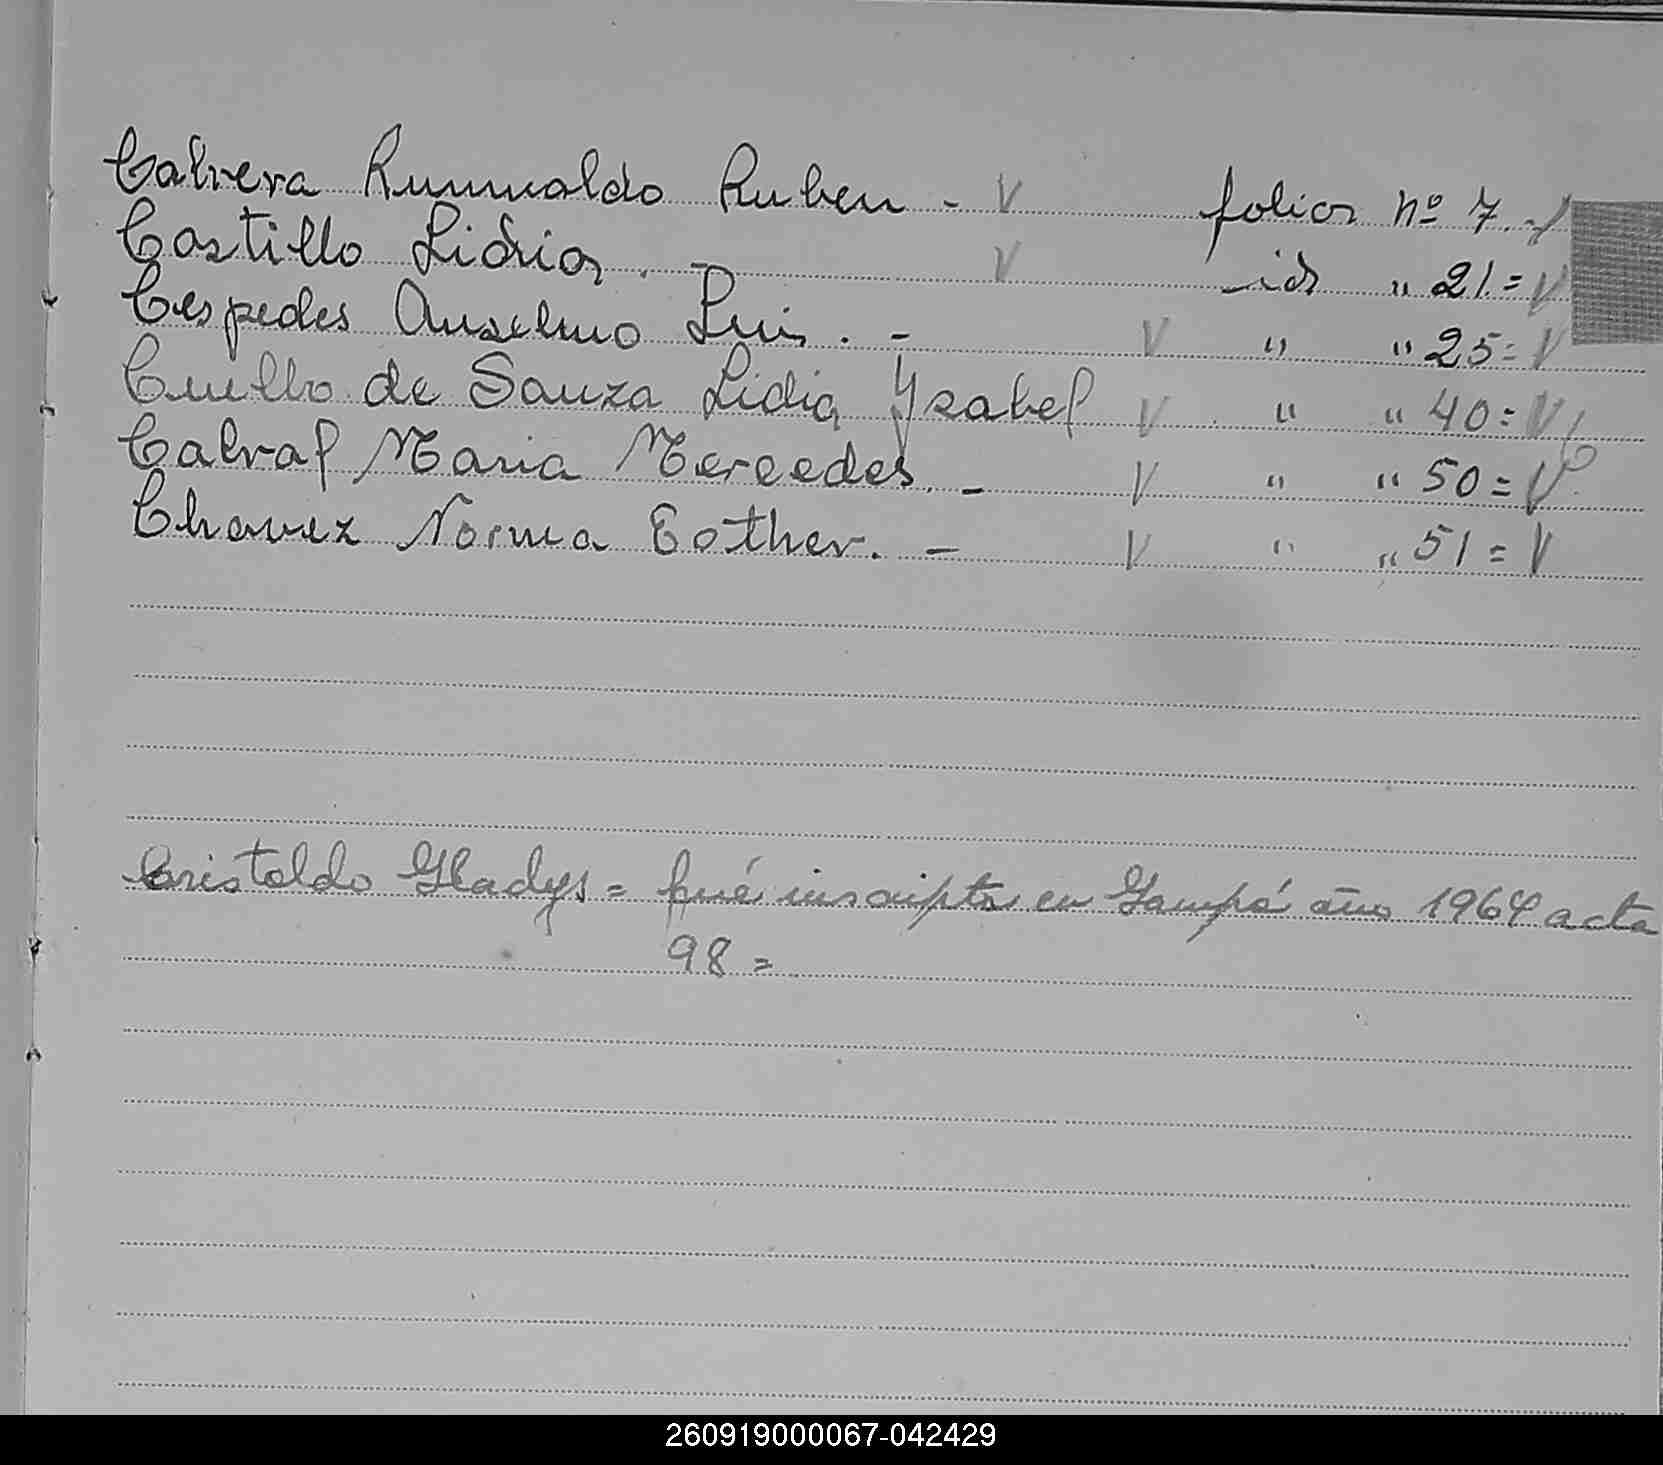 Cabrera Rumualdo Ruben - V folios nº 7. - V
Castillo Lidia . - V id " 21 = V
Cespedes Anselmo Luis . - V " " 25 = V
Cuello de Sauza Lidia Ysabel V " " 40 = V
Calvaf Maria Mercedes . - V " " 50 = V
Chavez Norma Esther . - V " " 51 = V
Cristaldo Gladys = fué inscripta en año 1964 acta
98 =
260919000067-042429